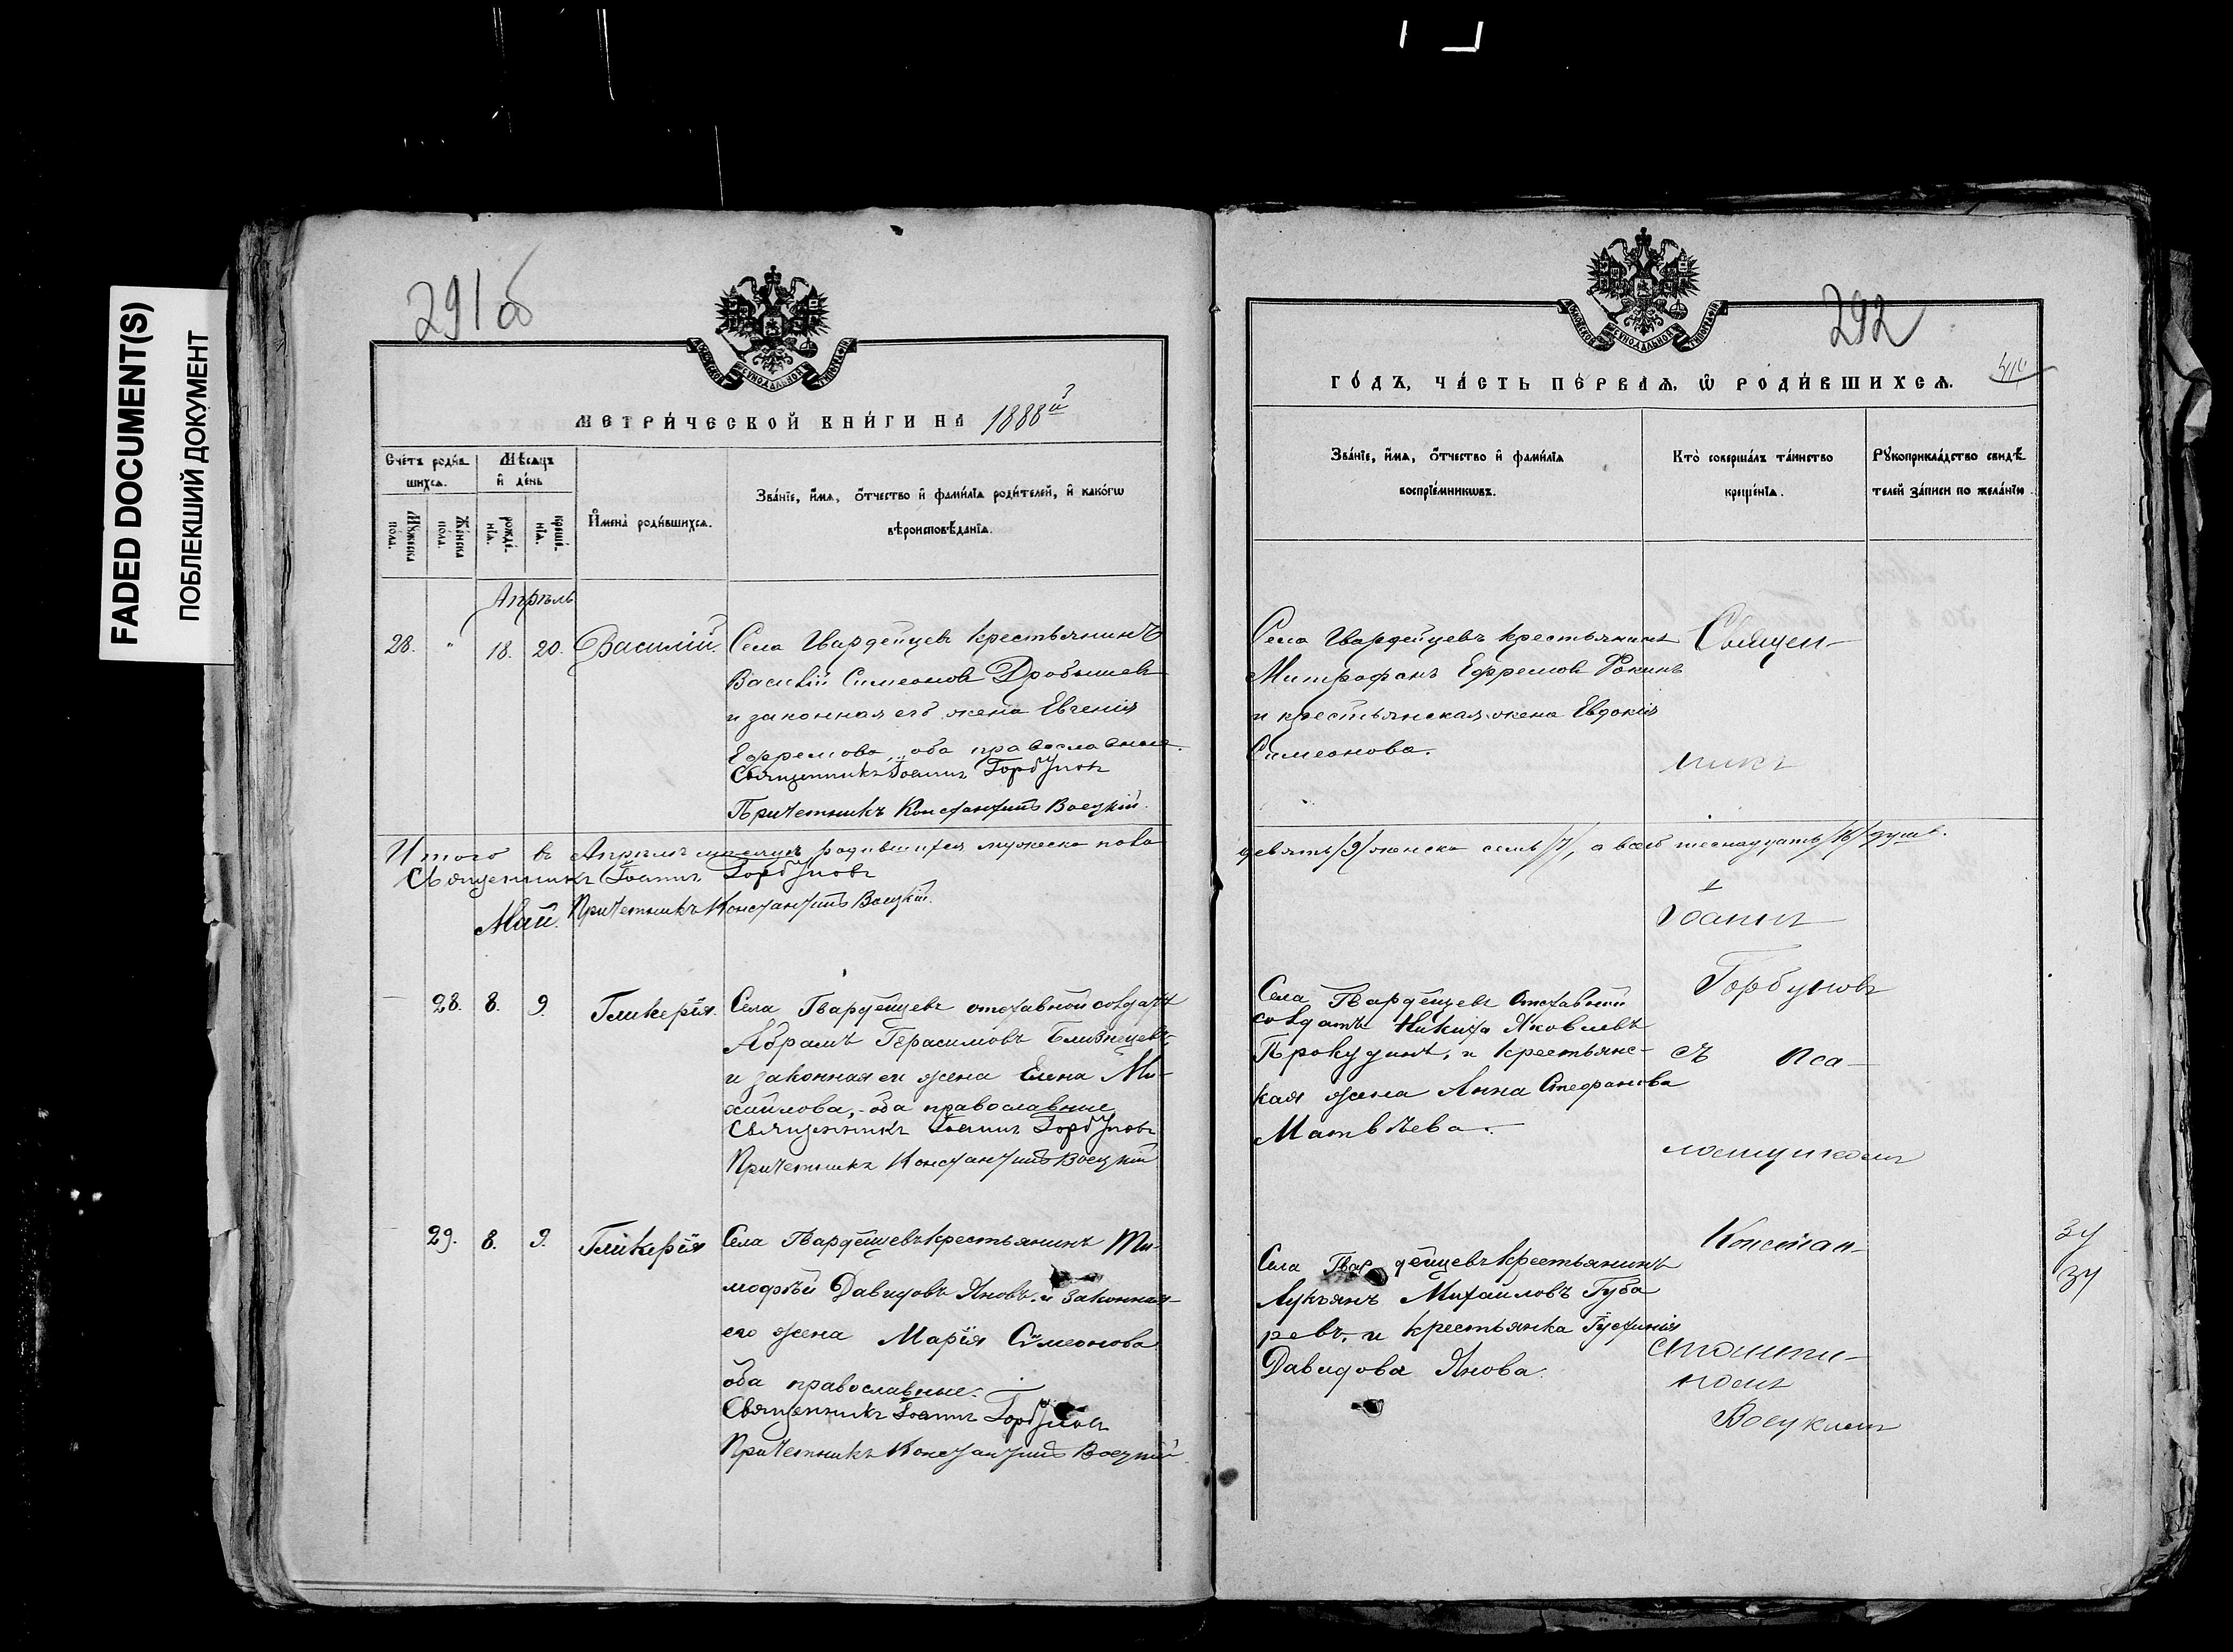 FADED DOCUMENT(S)
ПОБЛЕКШИЙ ДОКУМЕНТ
291об
МЕТРИ́ЧЕСКОЙ КНИ́ГИ НА 1888й
Сче́тъ роди́вшихсѧ.
Мѣ́сѧцъ и҆ де́нь
Мꙋ́жеска по́ла.
Же́нска по́ла.
рожде́нїѧ.
креще́нїѧ.
И҆мена̀ роди́вшихсѧ.
Зва́нїе, и҆́мѧ, ѻ҆́тчество и҆ фами́лїѧ роди́телей, и҆ како́гѡ
вѣроисповѣ́данїѧ.
Апрѣль
28. " 18. 20. Василій.
Села Гвардейцевъ крестьянинъ
Василій Симеоновъ Дробышевъ
и законная его жена Евгенія
Ефремова, оба православные.
Священникъ Іоаннъ Горбуновъ
Причетникъ Константинъ Воецкій.
Итого въ Апрѣлѣ мѣсяцѣ родившихся мужеска пола
Священникъ Іоаннъ Горбуновъ
Май. Причетникъ Константинъ Воецкій.
28. 8. 9. Гликерія.
Села Гвардейцевъ отставной солдатъ
Абрамъ Герасимовъ Близнецевъ
и законная его жена Елена Ми-
хайлова, оба православные
Священникъ Іоаннъ Горбуновъ
Причетникъ Константинъ Воецкій
29. 8. 9. Гликерія
Села Гвардейцевъ крестьянинъ Ти-
мофѣй Давидовъ Яновъ, и законная
его жена Марія Симеонова
оба православные.
Священникъ Іоаннъ Горбуновъ
Причетникъ Константинъ Воецкій
292
ГО́ДЪ, ЧА́СТЬ ПЕ́РВАѦ, Ѡ҆ РОДИ́ВШИХСѦ.
Зва́нїе, и҆́мѧ, ѻ҆́тчество и҆ фами́лїѧ
воспрїе́мникѡвъ.
Кто̀ соверша́лъ та́инство
креще́нїѧ.
Рꙋкоприкла́дство свидѣ́-
телей за́писи по жела́нїю.
Села Гвардейцевъ крестьянинъ
Митрофанъ Ефремовъ Фокинъ
и крестьянская жена Евдокія
Симеонова.
девять/9/женска семь/7/, а всѣхъ шеснадцать/16/душъ.
Села Гвардейцевъ Отставной
солдатъ Никита Яковлевъ
Прокудинъ, и крестьянс-
кая жена Анна Стефанова
Матвѣева.
Села Гвардейцевъ крестьянинъ
Лукьянъ Михайловъ Губа
ревъ, и крестьянка Іустинія
Давидова Янова.
Священ-
никъ
Іоаннъ
Горбуновъ
съ Пса-
ломщикомъ
Констан-
номъ
Воецкимъ